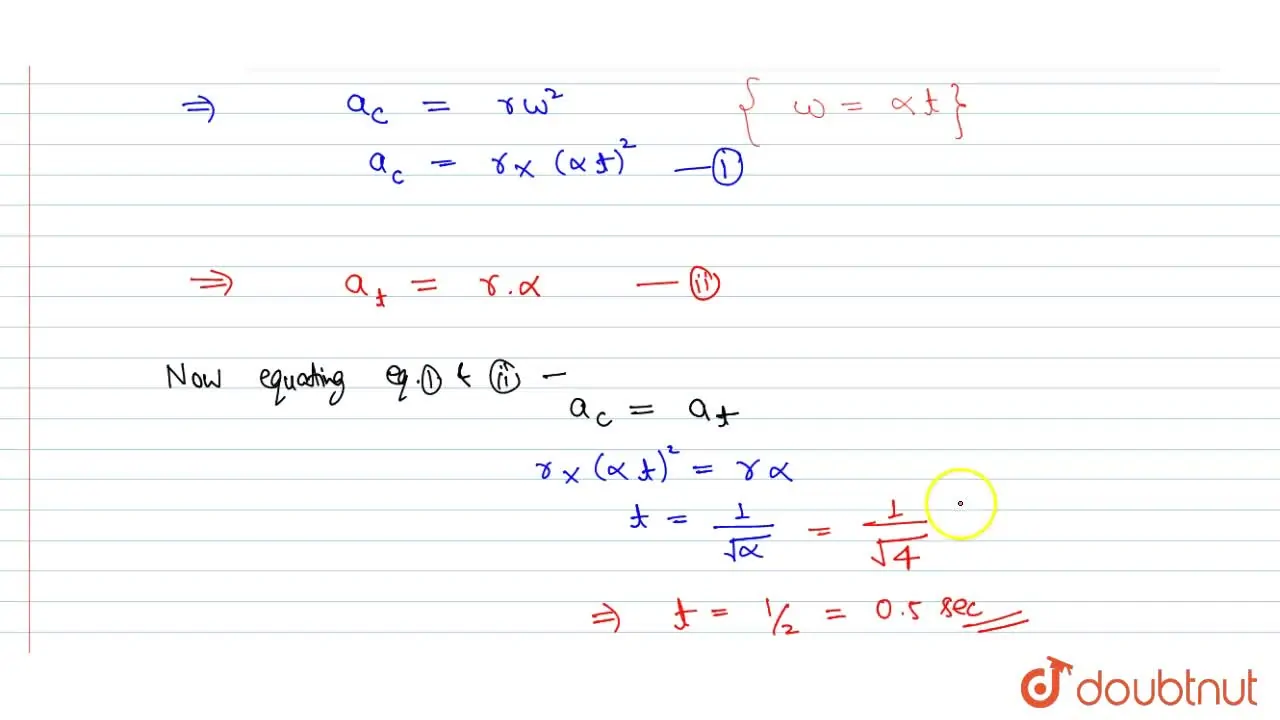 ⇒ a_c = rω² { ω = αt}
a_c = r × (αt)² — (i)
⇒ a_t = r.α — (ii)
Now equating eq.(i) & (ii) —
a_c = a_t
r × (αt)² = rα
t = 1/√α = 1/√4
⇒ t = 1/2 = 0.5 sec
doubtnut